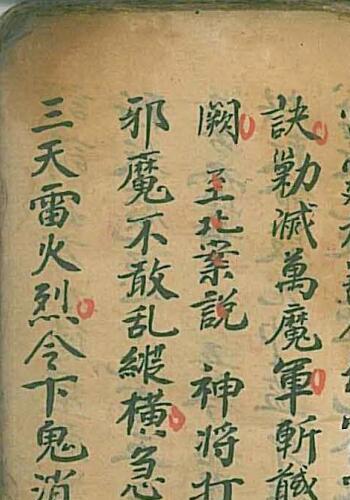 訣勦滅萬魔軍斬馘
闕 玉北案説 神將打
邪魔不敢乱縱橫急
三天雷火烈令下鬼消